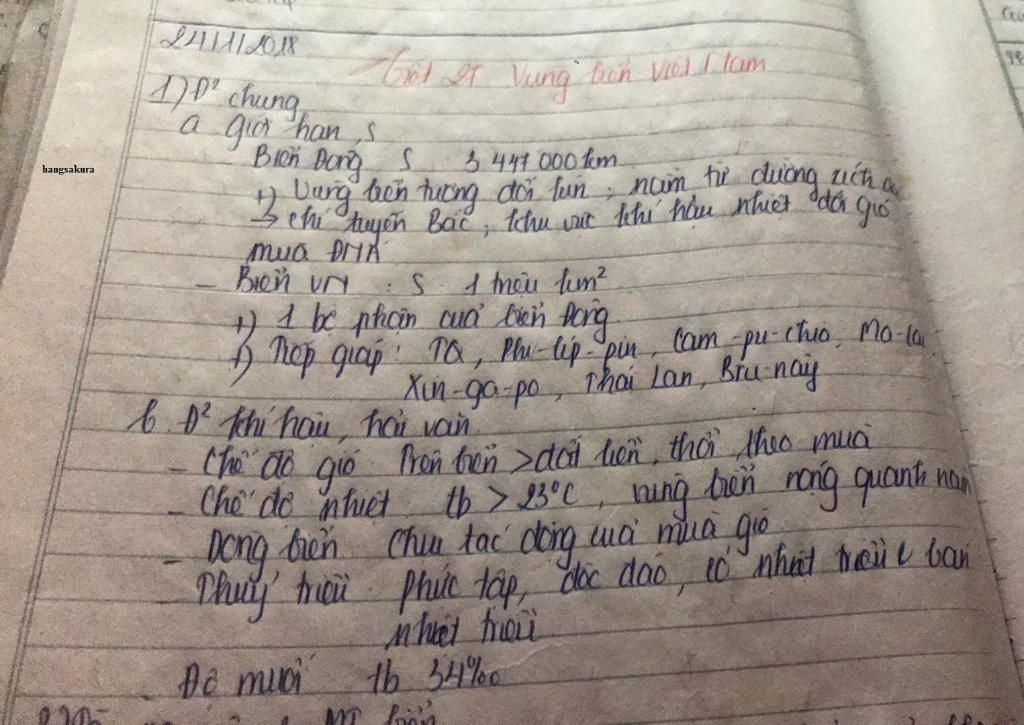 24/1/2018
Tiết 27 Vùng biển Việt Nam
1) Đ² chung
a giới hạn, S
hangsakura
Biển Đông S 3 447 000 km
+) Vùng biển tương đối lớn, nằm từ đường xích
→ chí tuyến Bắc, khu vực khí hậu nhiệt đới gió
mùa ĐNA
- Biển VN : S 1 triệu km²
+) 1 bộ phận của biển Đông
+) Tiếp giáp : TQ, Phi-lip-pin, Cam-pu-chia, Ma-lai
Xin-ga-po, Thái Lan, Bru-nây
b. Đ² khí hậu, hải văn
- Chế độ gió Trên biển > đất liền, thổi theo mùa
- Chế độ nhiệt tb > 23°C, vùng biển nóng quanh năm
- Dòng biển Chịu tác động của mùa gió
Thuỷ triều phức tạp, độc đáo, có nhật triều bán
nhật triều
Độ muối tb 34‰
MT biển